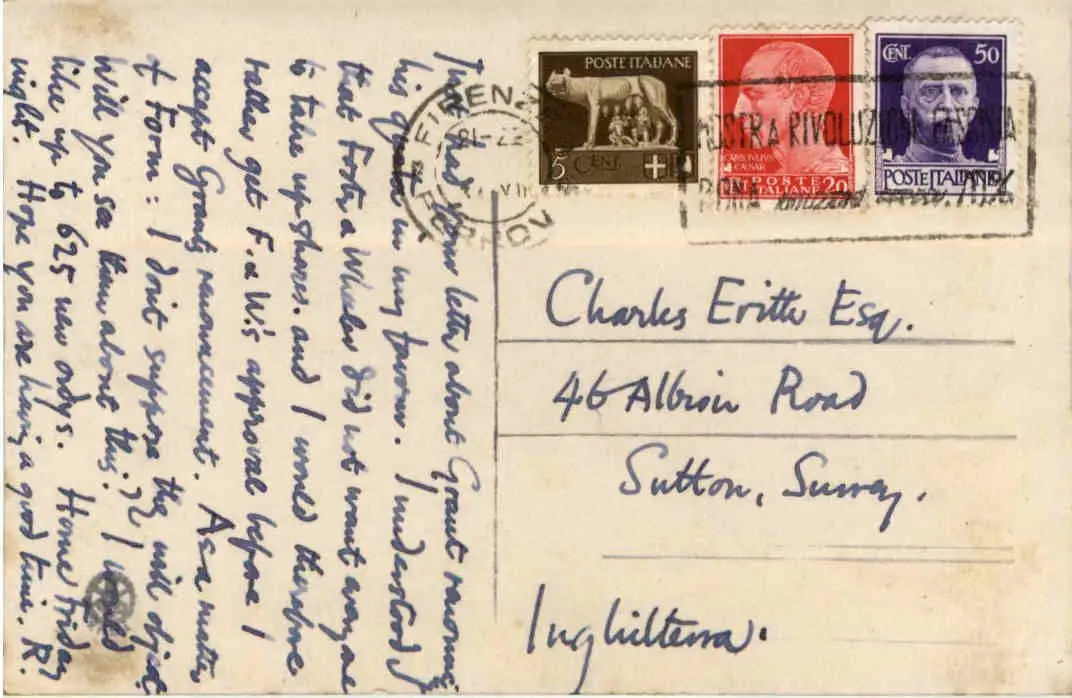 Just had your letter about Grant renouncing
his in my favour. I understood
that Foster & Wheeler did not want anyone
to take up shares. and I would therefore
rather get F. & W.'s approval before I
accept Grant's renouncement. As a matter
of form: I don't suppose they will object.
Will you see them about this? I would
like up to 625 new ordys. Home Friday
night. Hope you are having a good time. R.
FIRENZE
FERROVIA
POSTE ITALIANE
5 CENT.
POSTE
ITALIANE 20
CENT. 50
POSTE ITALIANE
MOSTRA RIVOLUZIONE FASCISTA
ROMA
Charles Erith Esq.
46 Albion Road
Sutton, Surrey.
Inghilterra.